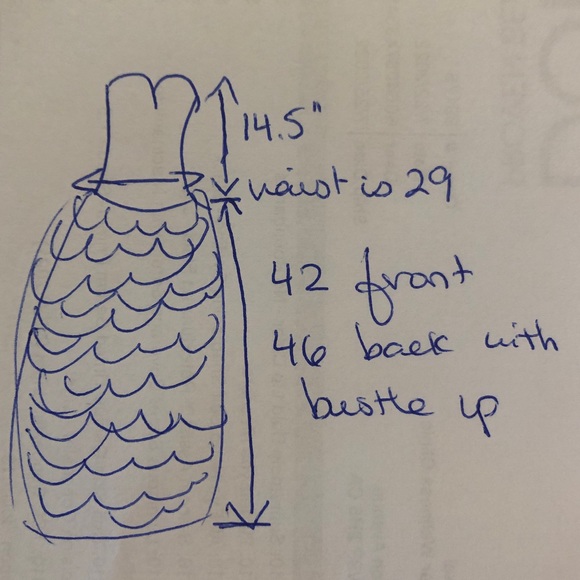 14.5"
waist is 29
42 front
46 back with
bustle up